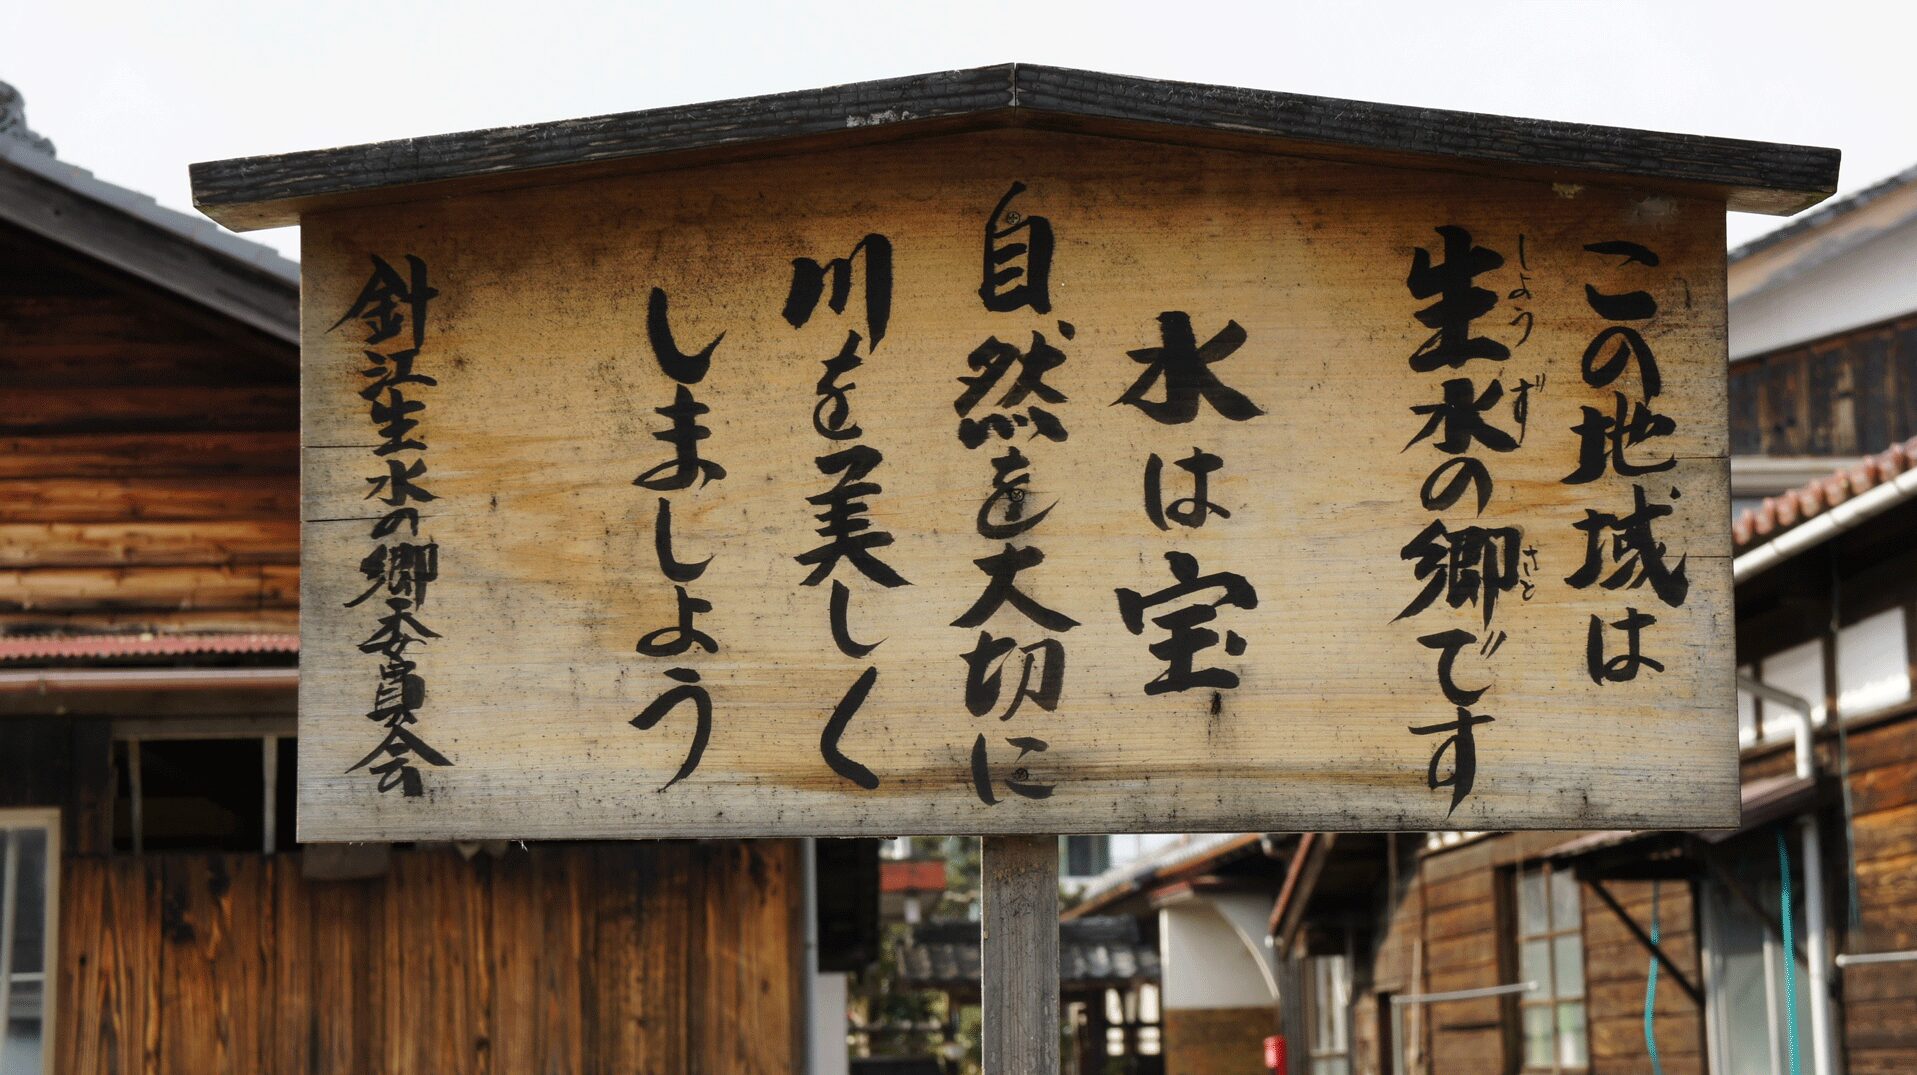 この地域は
生水の郷です
しようず
さと
水は宝
自然を大切に
川を美しく
しましよう
針江生水の郷委員会